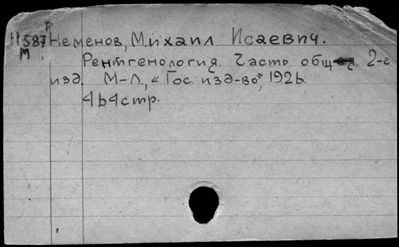 Р
Н587 Неменов, Михаил Исаевич.
М Рентгенология. Часть общая. 2-е
изд. М-Л., «Гос. изд-во», 1926.
464стр.